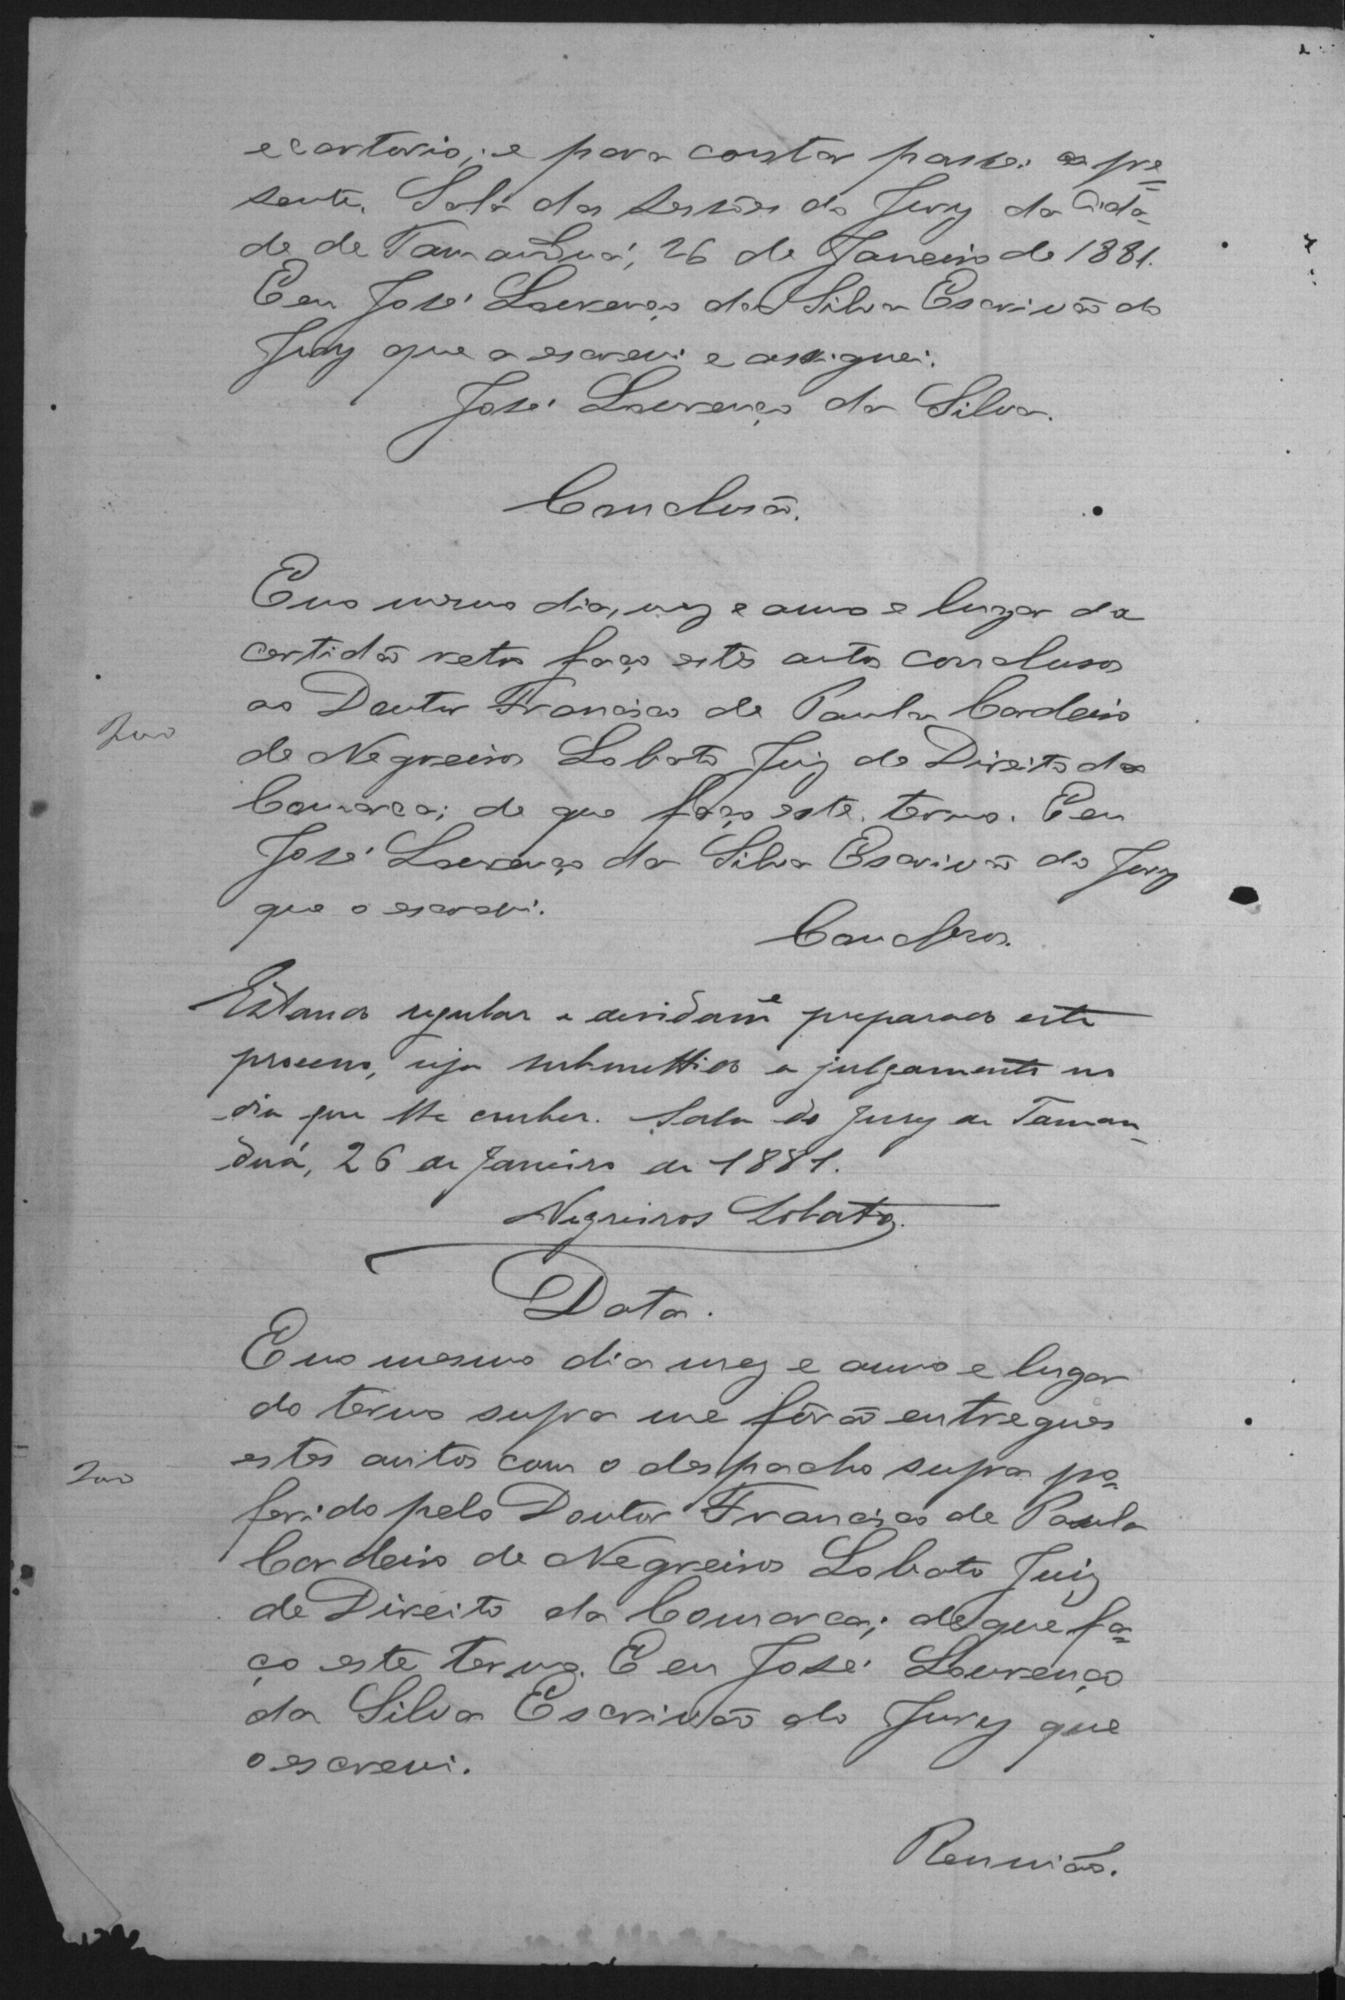 e cartorio; e para constar passei a pre=
sente. Sala das Sessões do Jury da Cida-
de de Tamanduá, 26 de Janeiro de 1881.
E eu José Lourenço da Silva Escrivão do
Jury que a escrevi e assignei.
José Lourenço da Silva.
Conclusão.
E no mesmo dia, mez e anno e lugar da
certidão retro faço estes autos conclusos
ao Doutor Francisco de Paula Cordeiro
200
de Negreiros Lobato Juiz de Direito da
Comarca; de que faço este termo. E eu
José Lourenço da Silva Escrivão do Jury
que o escrevi.
Conclusos.
Estando regular e devidamte preparado este
processo, seja submettido a julgamento no
dia que lhe couber. Sala do Jury de Taman-
duá, 26 de Janeiro de 1881.
Negreiros Lobato.
Data.
E no mesmo dia mez e anno e lugar
do termo supra me fôrão entregues
estes autos com o despacho supra pro=
200
ferido pelo Doutor Francisco de Paula
Cordeiro de Negreiros Lobato Juiz
de Direito da Comarca; de que fa=
ço este termo. E eu José Lourenço
da Silva Escrivão do Jury que
o escrevi.
Reunião.